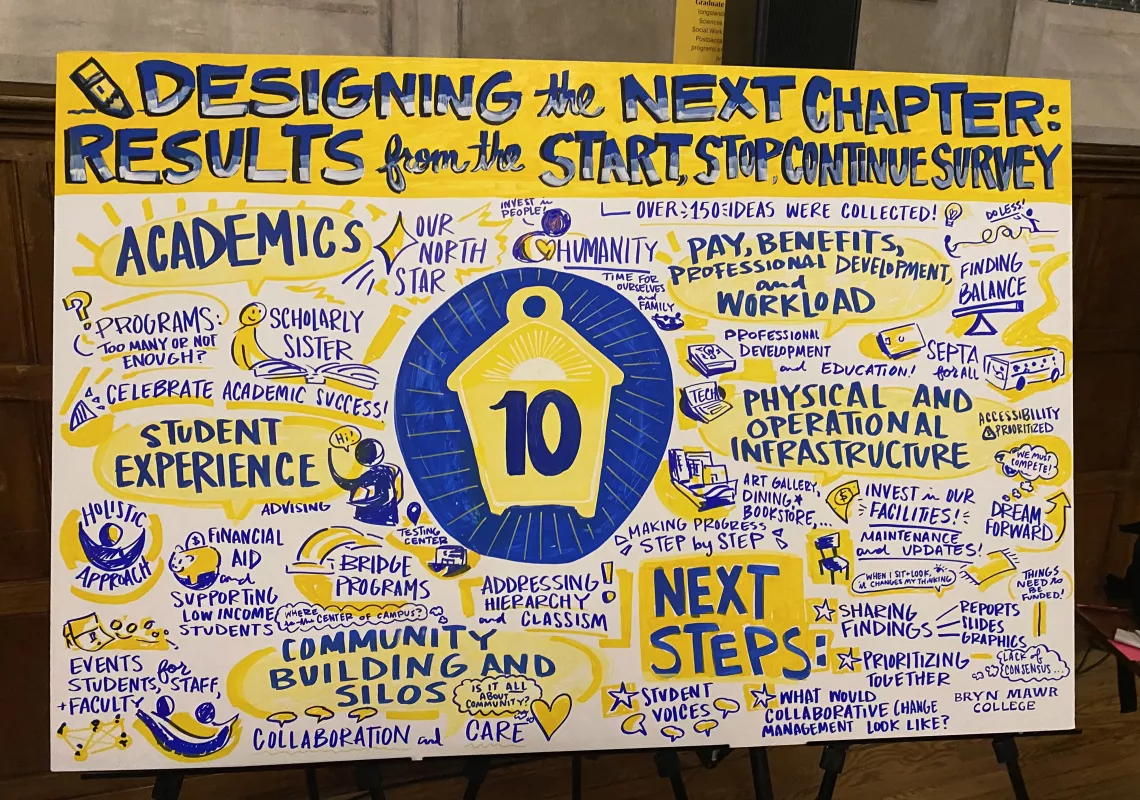 Graduate
longstand
Sciences
Social Work
Postbacca
programs a
DESIGNING the NEXT CHAPTER:
RESULTS from the START, STOP, CONTINUE SURVEY
ACADEMICS
OUR
NORTH
STAR
INVEST in
PEOPLE!
HUMANITY
TIME FOR
OURSELVES
and
FAMILY
OVER 150 IDEAS WERE COLLECTED!
DO LESS!
PAY, BENEFITS,
PROFESSIONAL DEVELOPMENT,
and
WORKLOAD
FINDING
BALANCE
?
PROGRAMS:
TOO MANY OR NOT
ENOUGH?
SCHOLARLY
SISTER
CELEBRATE ACADEMIC SUCCESS!
10
PROFESSIONAL
DEVELOPMENT
and EDUCATION!
SEPTA
for ALL
TECH
PHYSICAL AND
OPERATIONAL
INFRASTRUCTURE
ACCESSIBILITY
PRIORITIZED
WE MUST
COMPETE!
STUDENT
EXPERIENCE
Hi!
ADVISING
HOLISTIC
APPROACH
$
FINANCIAL
AID
and
SUPPORTING
LOW INCOME
STUDENTS
BRIDGE
PROGRAMS
TESTING
CENTER
WHERE
is the CENTER OF CAMPUS?
ADDRESSING
HIERARCHY
and CLASSISM
!
ART GALLERY,
DINING,
BOOKSTORE,...
MAKING PROGRESS
STEP by STEP
$
INVEST in OUR
FACILITIES!
MAINTENANCE
and UPDATES!
DREAM
FORWARD
WHEN I SIT + LOOK,
it CHANGES MY THINKING
THINGS
NEED to
BE
FUNDED!
EVENTS for
STUDENTS, STAFF,
+ FACULTY
COMMUNITY
BUILDING AND
SILOS
IS IT ALL
ABOUT
COMMUNITY?
COLLABORATION and CARE
NEXT
STEPS:
SHARING
FINDINGS
REPORTS
SLIDES
GRAPHICS
PRIORITIZING
TOGETHER
LACK of
CONSENSUS...
STUDENT
VOICES
WHAT WOULD
COLLABORATIVE CHANGE
MANAGEMENT LOOK LIKE?
BRYN MAWR
COLLEGE